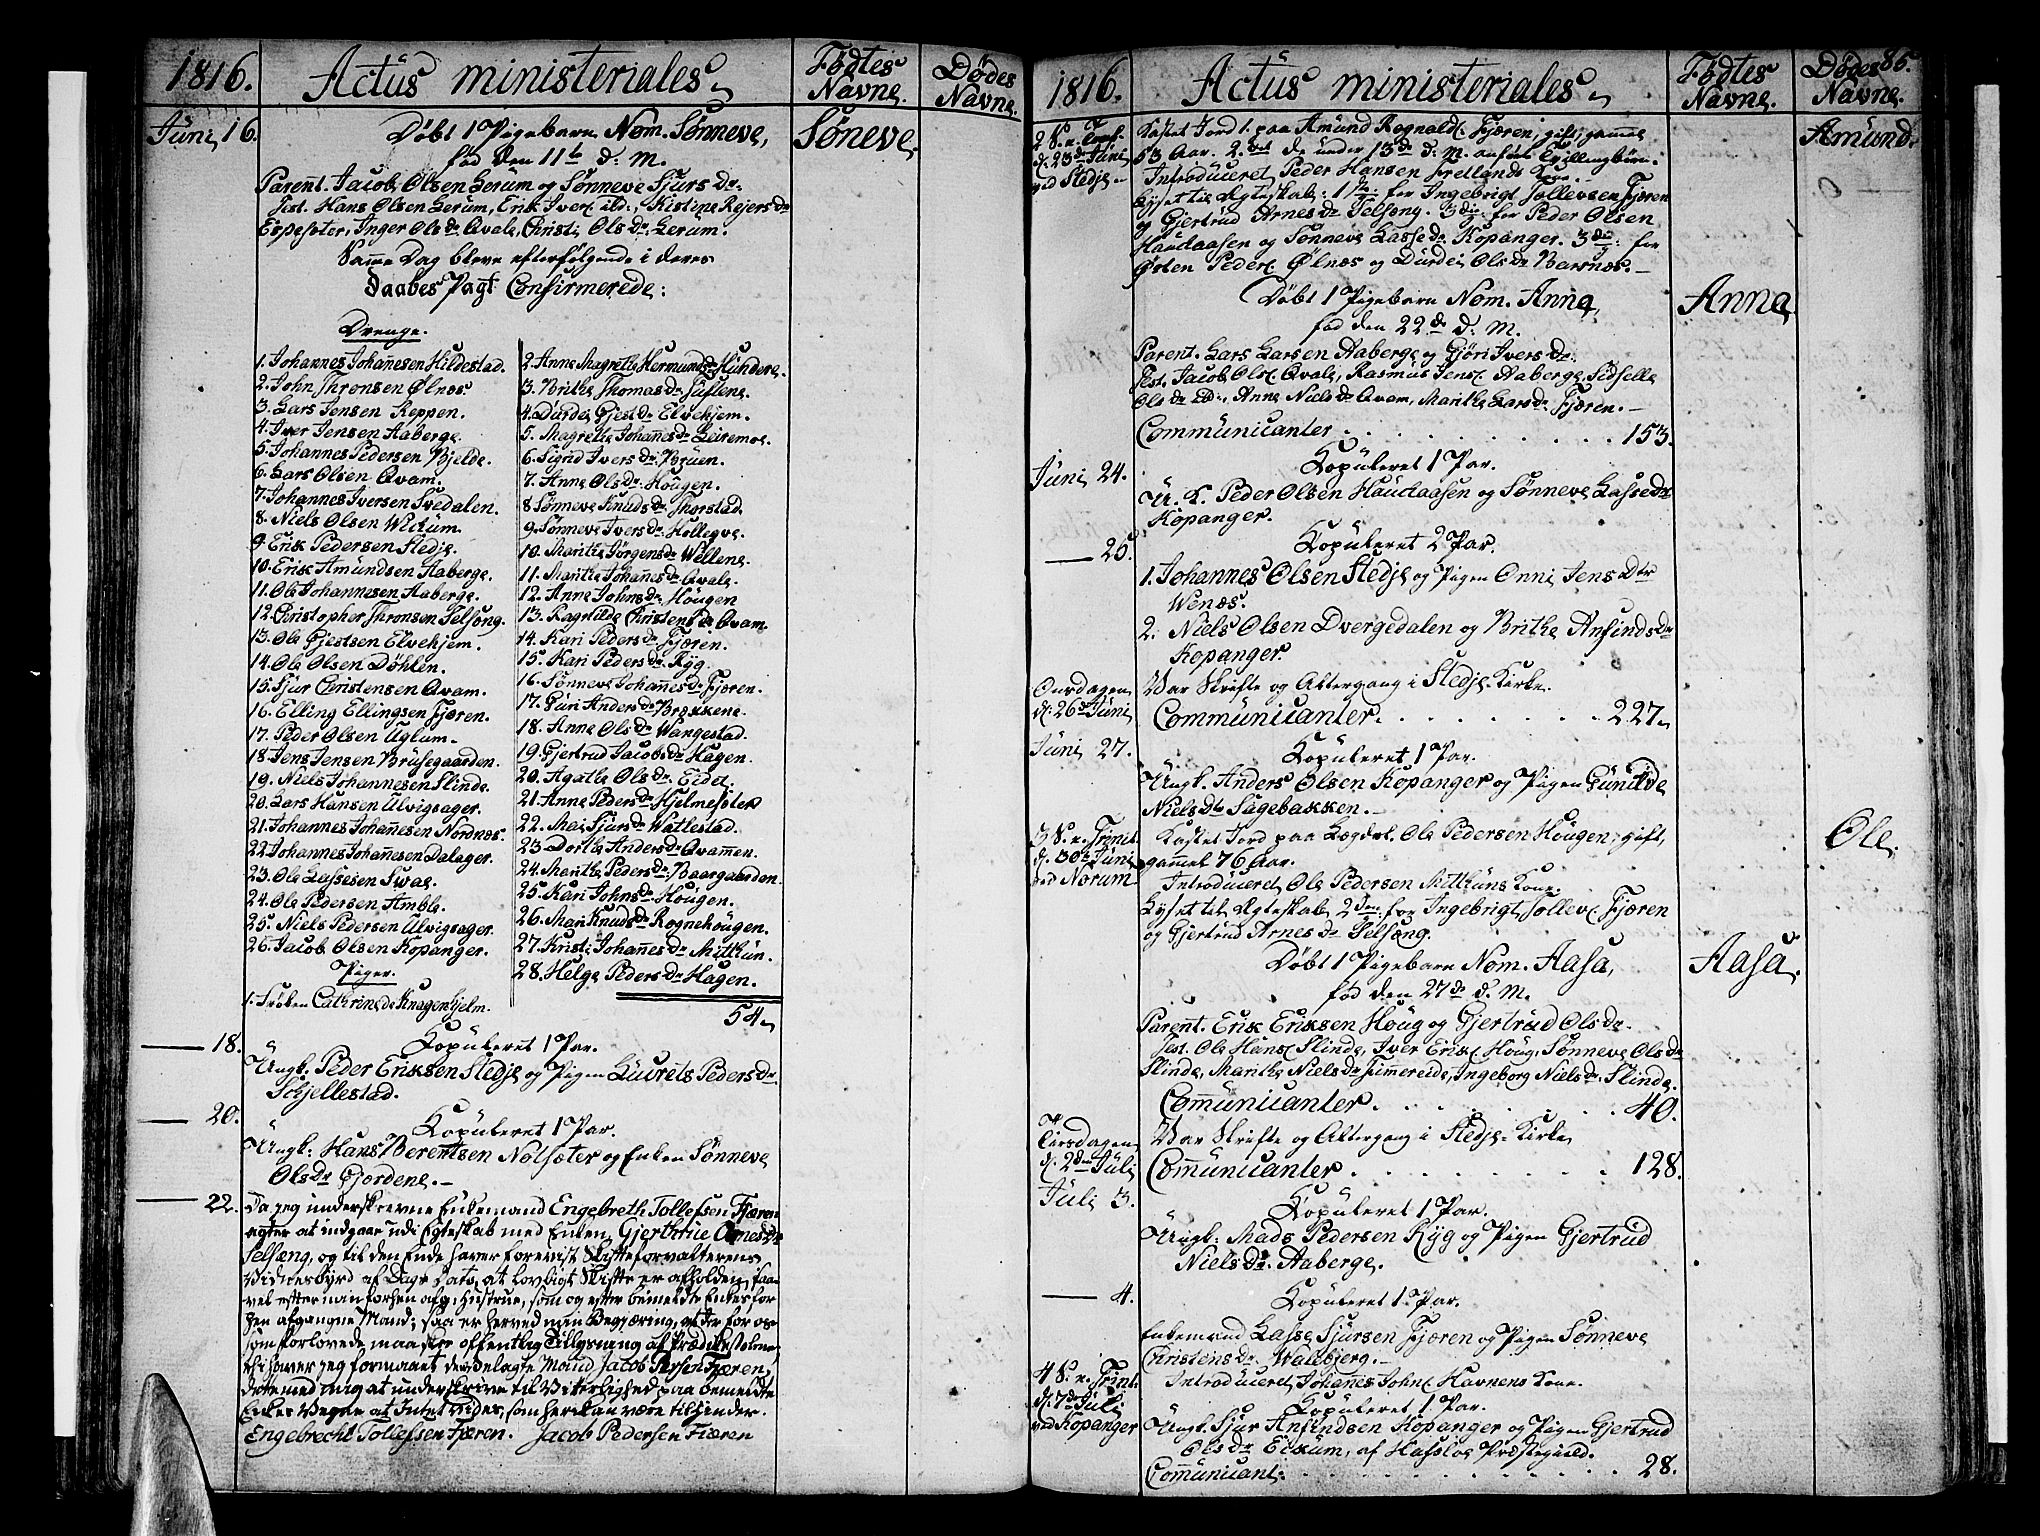 1816. Actus ministeriales Fødtes Navne. Dødes Navne.
Juni 16. Døbt 1 Pigebarn Nom. Sønneve, Søneve.
fød den 11te d: M.
Parent. Jacob Olsen Lerum og Sønneve Sjurs Dr.
Test. Hans Olsen Lerum, Erik Ivers. ibd:, Kistine Rejers Dr
Espesæter, Inger Ols Dr Qvale, Christi Ols Dr: Lerum.
Samme Dag bleve efterfølgende i deres
Daabes Pagt Confirmerede:
Drenge.
1. Johannes Johañesen Hildestad.
2. John Thronsen Ølnæs.
3. Lars Jensen Reppen.
4. Iver Jensen Aaberge.
5. Johannes Pedersen Bjelde.
6. Lars Olsen Qvam.
7. Johannes Iversen Svedalen.
8. Niels Olsen Wickum.
9. Erik Pedersen Stedje.
10. Erik Amundsen Aaberge.
11. Ole Johannesen Aaberge.
12. Christopher Thronsen Selseng.
13. Ole Gjestsen Elvekjem.
14. Ole Olsen Døhlen.
15. Sjur Christensen Qvam.
16. Elling Ellingsen Fjæren.
17. Peder Olsen Uglum.
18. Jens Jensen Brusegaarden.
19. Niels Johannesen Slinde.
20. Lars Hansen Ulvigsager.
21. Johannes Johañesen Nordnæs.
22. Johannes Johañesen Dalager.
23. Ole Lassesen Swae.
24. Ole Pedersen Amble.
25. Niels Pedersen Ulvigsager.
26. Jacob Olsen Kopanger.
Piger.
1. Frøken Cathrine de Knagenhjelm.
2. Anne Magrethe Hermunds Dr Hundere.
3. Brithe Thomas Dr Tuftene.
4. Durdei Gjest Dr Elvekjem.
5. Magrethe Johañes Dr Leiremoe.
6. Sigrid Ivers Dr: Bruen.
7. Anne Ols Dr: Hougen.
8. Sønneve Knuds Dr: Thorstad.
9. Sønneve Ivers Dr: Hollegve.
10. Marithe Jørgens Dr Wellene.
11. Marithe Johañes Dr Qvale.
12. Anne Johns Dr: Hougen
13. Ragnilde Christens Dr Qvam.
14. Kari Peders Dr: Fjæren.
15. Kari Peders Dr. Ryg.
16. Sønneve Johañes Dr Fjæren.
17. Guri Anders Dr Bræckene.
18. Anne Ols Dr Wangestad.
19. Gjertrud Jacobs Dr Hagen.
20. Agathe Ols Dr. Eidet.
21. Anne Peders Dr Hjelmesæter
22. Mari Sjurs Dr Wattestad.
23. Dorthe Anders Dr Qvammen.
24. Marithe Peders Dr: Baargaarden.
25. Kari Johns Dr: Hougen.
26. Mari Knuds Dr Rognehougen.
27. Kristi Johañes Dr: Mitthun.
28. Helge Peders Dr Hagen.
54
— 18. Kopuleret 1 Par.
Ungk. Peder Eriksen Stedje og Pigen Lucrets Peders Dr
Schjellestad.
— 20. Kopuleret 1 Par.
Ungk: Hans Berentsen Notsæter og Enken Sønneve
Ols Dr Gjordene.
— 22. Da jeg underskrevne Enkemand Engebreth Tollefsen Fjæren
agter at indgaae udi Egteskab med Enken Gjerthrue Arnes Dr
Selseng, og til den Ende haver forevist Skifteforvalterens
Vidnesbyrd af Dags Dato, at lovligt Skifte er afholden, saa-
vel efter min forhen afg. Hustrue, som og efter bemeldte Enkes for
hen afgangne Mand; saa er herved min Begjæring, at der for os
som forlovede maa skee offentlig Tillysning af Prædikestolen
thi haver jeg formaaet den Mand Jacob Persen Fjæren,
dette med mig at underskrive til Vitterlighed paa bemeldte
Enkes Vegne at Intet vides, som heri kan være til hinder.
Engebrecht Tollefsen Fjæren. Jacob Pedersen Fiæren
1816. Actus ministeriales Fødtes Navne. Dødes Navne. 86.
2 S. e. Trinit. d. 23de Juni ved Stedje
Kastet Jord 1. paa Amund Rognalds. Fjæren, gift, gamel Amund.
53 Aar. 2. de under 13de d: M. anførte Tvillingbørn.
Introduceret Peder Hansen Fretlands Kone.
Lyset til Ægteskab: 1ste: for Ingebrigt Tollevsen Fjæren
og Gjertrud Arnes Dr Selseng. 3die for Peder Olsen
Haudaasen og Sønneve Lasse Dr Kopanger. 3die: for
Østen Peders. Ølnæs og Durdei Ols Dr Barsnæs.
Døbt 1 Pigebarn Nom. Anna, Anna
fød den 22de d: M.
Parent. Lars Larsen Aaberge og Gjøri Ivers Dr.
Test. Jacob Ols. Qvale, Rasmus Jens. Aaberge, Sidselle
Ols Dr ibd:, Anne Niels Dr Qvam, Marithe Lars Dr: Fjæren.
Communicanter 153.
Juni 24. Kopuleret 1 Par.
U. K. Peder Olsen Haudaasen og Sønneve Lasse Dr
Kopanger.
— 25. Kopuleret 2 Par.
1. Johannes Olsen Stedje og Pigen Onni Jens Dtr
Wenæs.
2. Niels Olsen Dvergedalen og Brithe Anfinds Dr
Kopanger.
Onsdagen d. 26de Juni Var Skrifte og Altergang i Stedje-Kirke.
Communicanter. 227.
Juni 27. Kopuleret 1 Par.
Ungk. Anders Olsen Kopanger og Pigen Gunilde
Niels Dtr Sagebakken.
3 S. e. Trinit. d. 30te Juni ved Norum
Kastet Jord paa Lægdsl. Ole Pedersen Hougen, gift, Ole.
gammel 76 Aar.
Introduceret Ole Pedersen Mitthuns Kone.
Lyset til Ægteskab 2den: for Ingebrigt Tollevs. Fjæren
og Gjertrud Arnes Dr Selseng.
Døbt 1 Pigebarn Nom. Aasa, Aasa.
fød den 27de d. M.
Parent. Erik Eriksen Houg og Gjertrud Ols Dr.
Test. Ole Hans. Slinde, Iver Eriks. Houg, Sønneve Ols Dr
Slinde, Marithe Niels Dr Fimmereide, Ingeborg Niels Dr: Slinde.
Coṁunicanter. 40.
Tirsdagen d. 2den Juli Var Skrifte og Altergang i Stedje-Kirke
Coṁunicanter 128.
Juli 3. Kopuleret 1 Par.
Ungk: Mads Pedersen Ryg og Pigen Gjertrud
Niels Dr. Aaberge.
— 4. Kopuleret 1 Par.
Enkemand Lasse Sjursen Fjæren og Pigen Sønneve
Christens Dr. Walebjerg.
4 S. e. Trinit. d. 7de Juli ved Kopanger
Introduceret Johañes Johns. Havnens Kone.
Kopuleret 1 Par.
Ungk. Sjur Anfindsen Kopanger og Pigen Gjertrud
Ols Dr Eikum, af Hafsloe Præstegield.
Coṁunicant: 28.